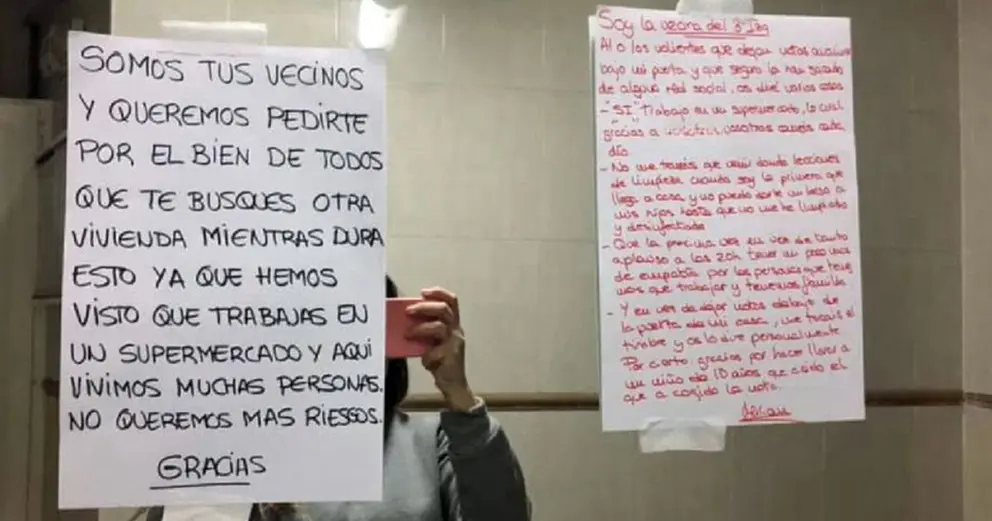 SOMOS TUS VECINOS
Y QUEREMOS PEDIRTE
POR EL BIEN DE TODOS
QUE TE BUSQUES OTRA
VIVIENDA MIENTRAS DURA
ESTO YA QUE HEMOS
VISTO QUE TRABAJAS EN
UN SUPERMERCADO Y AQUI
VIVIMOS MUCHAS PERSONAS.
NO QUEREMOS MAS RIESGOS.
GRACIAS
Soy la vecina del 3º Izq
Al o los valientes que dejan notas
bajo mi puerta y que seguro la han sacado
de alguna red social, os diré varias cosas
- "SI" Trabajo en un supermercado, lo cual
gracias a vosotros coméis cada
día.
- No me tenéis que venir dando lecciones
de limpieza cuando soy la primera que
llega a casa y no puedo darle un beso a
mis hijos hasta que no me he limpiado
y desinfectado
- Que la próxima vez en vez de tanto
aplauso a las 20h tener un poco mas
de empatía por las personas que tene
mos que trabajar y tenemos familia
- Y en vez de dejar notas debajo de
la puerta de mi casa, me tocáis el
timbre y os lo dire personalmente
Por cierto gracias por hacer llorar a
un niño de 10 años que a sido el
que a cogido la nota.